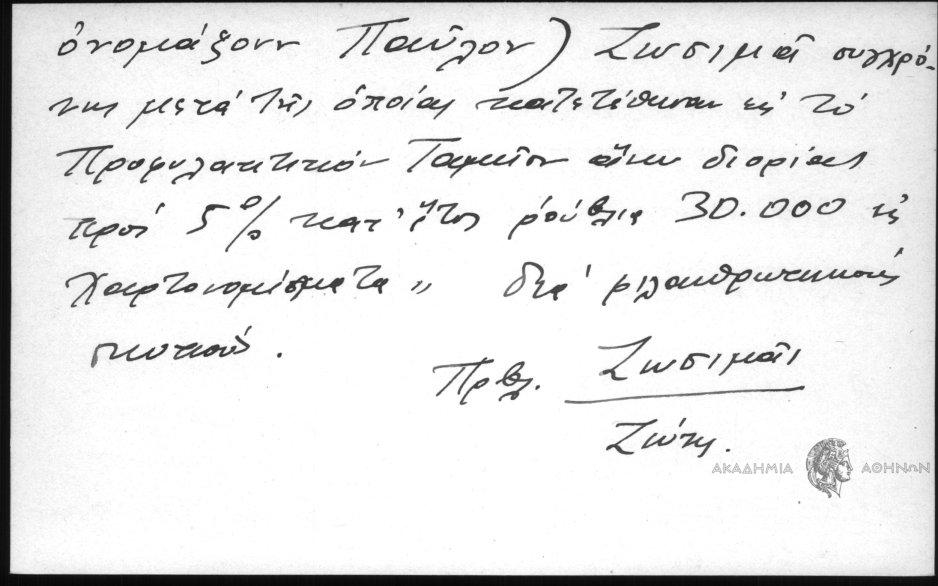 ὀνομάζουν Παῦλον) Ζωσιμᾶ συγχρό-
νως μετά τῆς ὁποίας κατετέθησαν εἰς τό
Προφυλακτικόν Ταμεῖον ἄνευ διορίας
πρός 5% κατ' ἔτος ρούβλια 30.000 εἰς
χαρτονομίσματα „ διά φιλανθρωπικούς
σκοπούς.
Πρβλ. Ζωσιμᾶι
Ζώτης.
ΑΚΑΔΗΜΙΑ ΑΘΗΝΩΝ